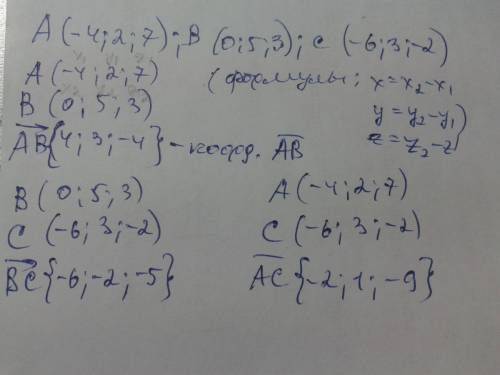 A (-4; 2; 7); B (0; 5; 3); C (-6; 3; -2)
x₁ y₁ z₁
A (-4; 2; 7) (формулы: x = x₂ - x₁
B (0; 5; 3) y = y₂ - y₁
AB {4; 3; -4} - коорд. AB z = z₂ - z₁)
B (0; 5; 3) A (-4; 2; 7)
C (-6; 3; -2) C (-6; 3; -2)
BC {-6; -2; -5} AC {-2; 1; -9}